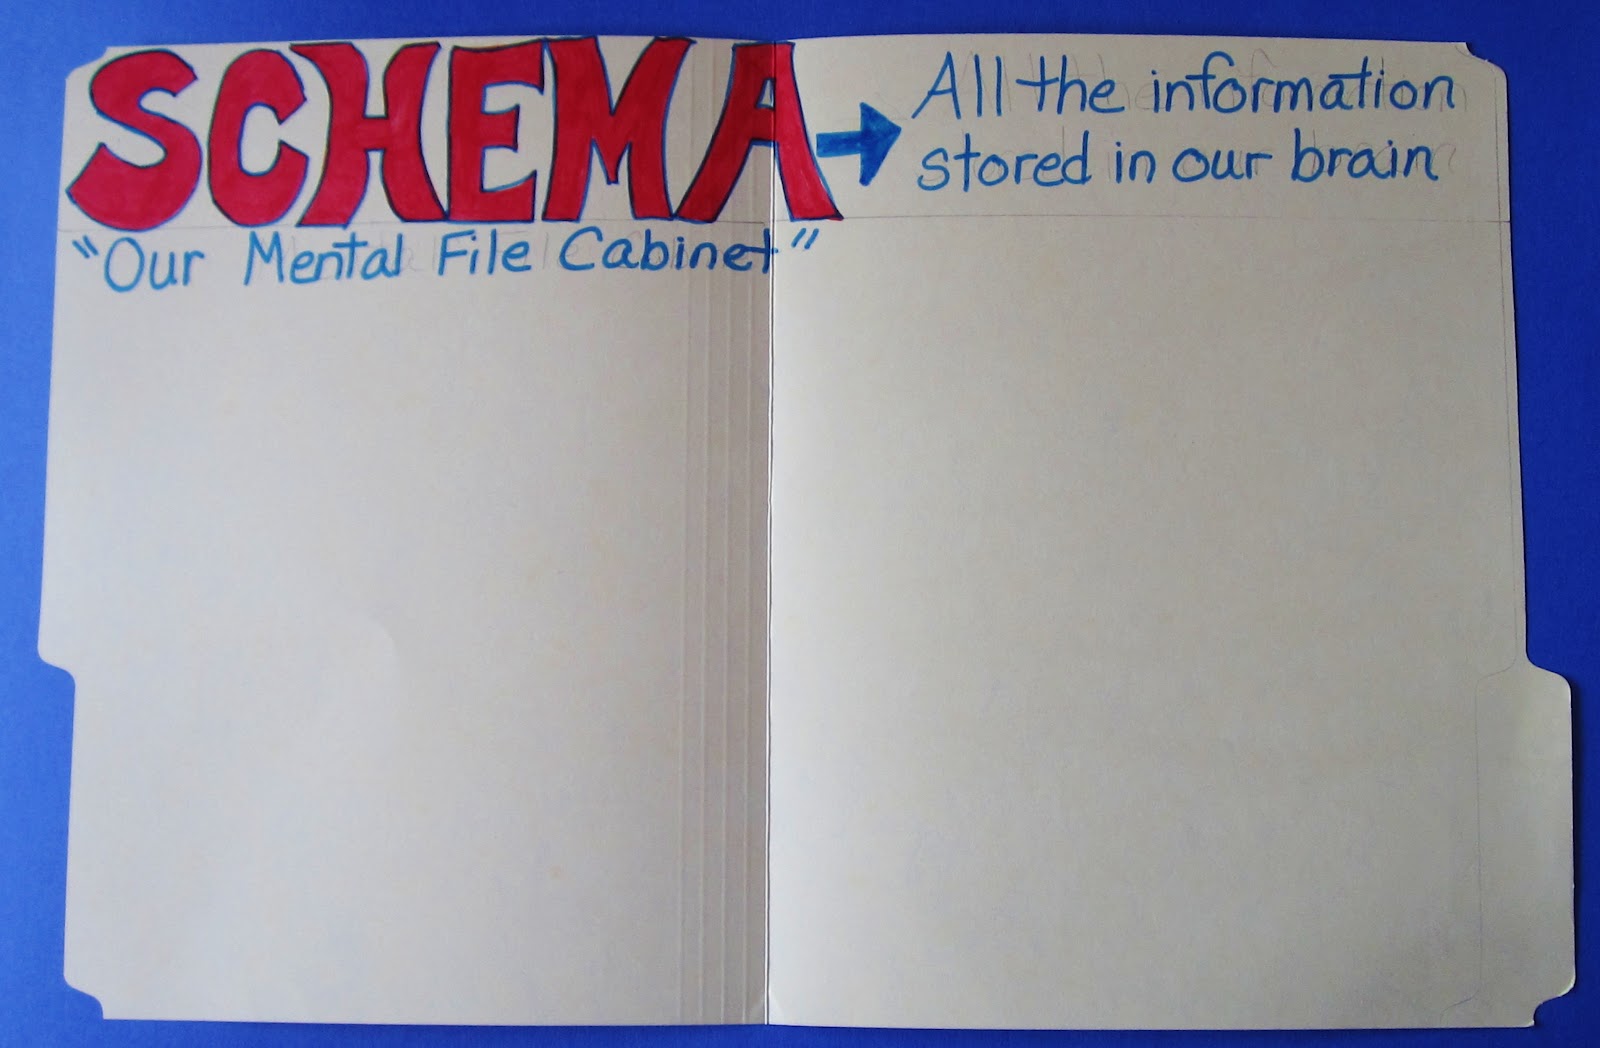 SCHEMA
All the information
stored in our brain
"Our Mental File Cabinet"